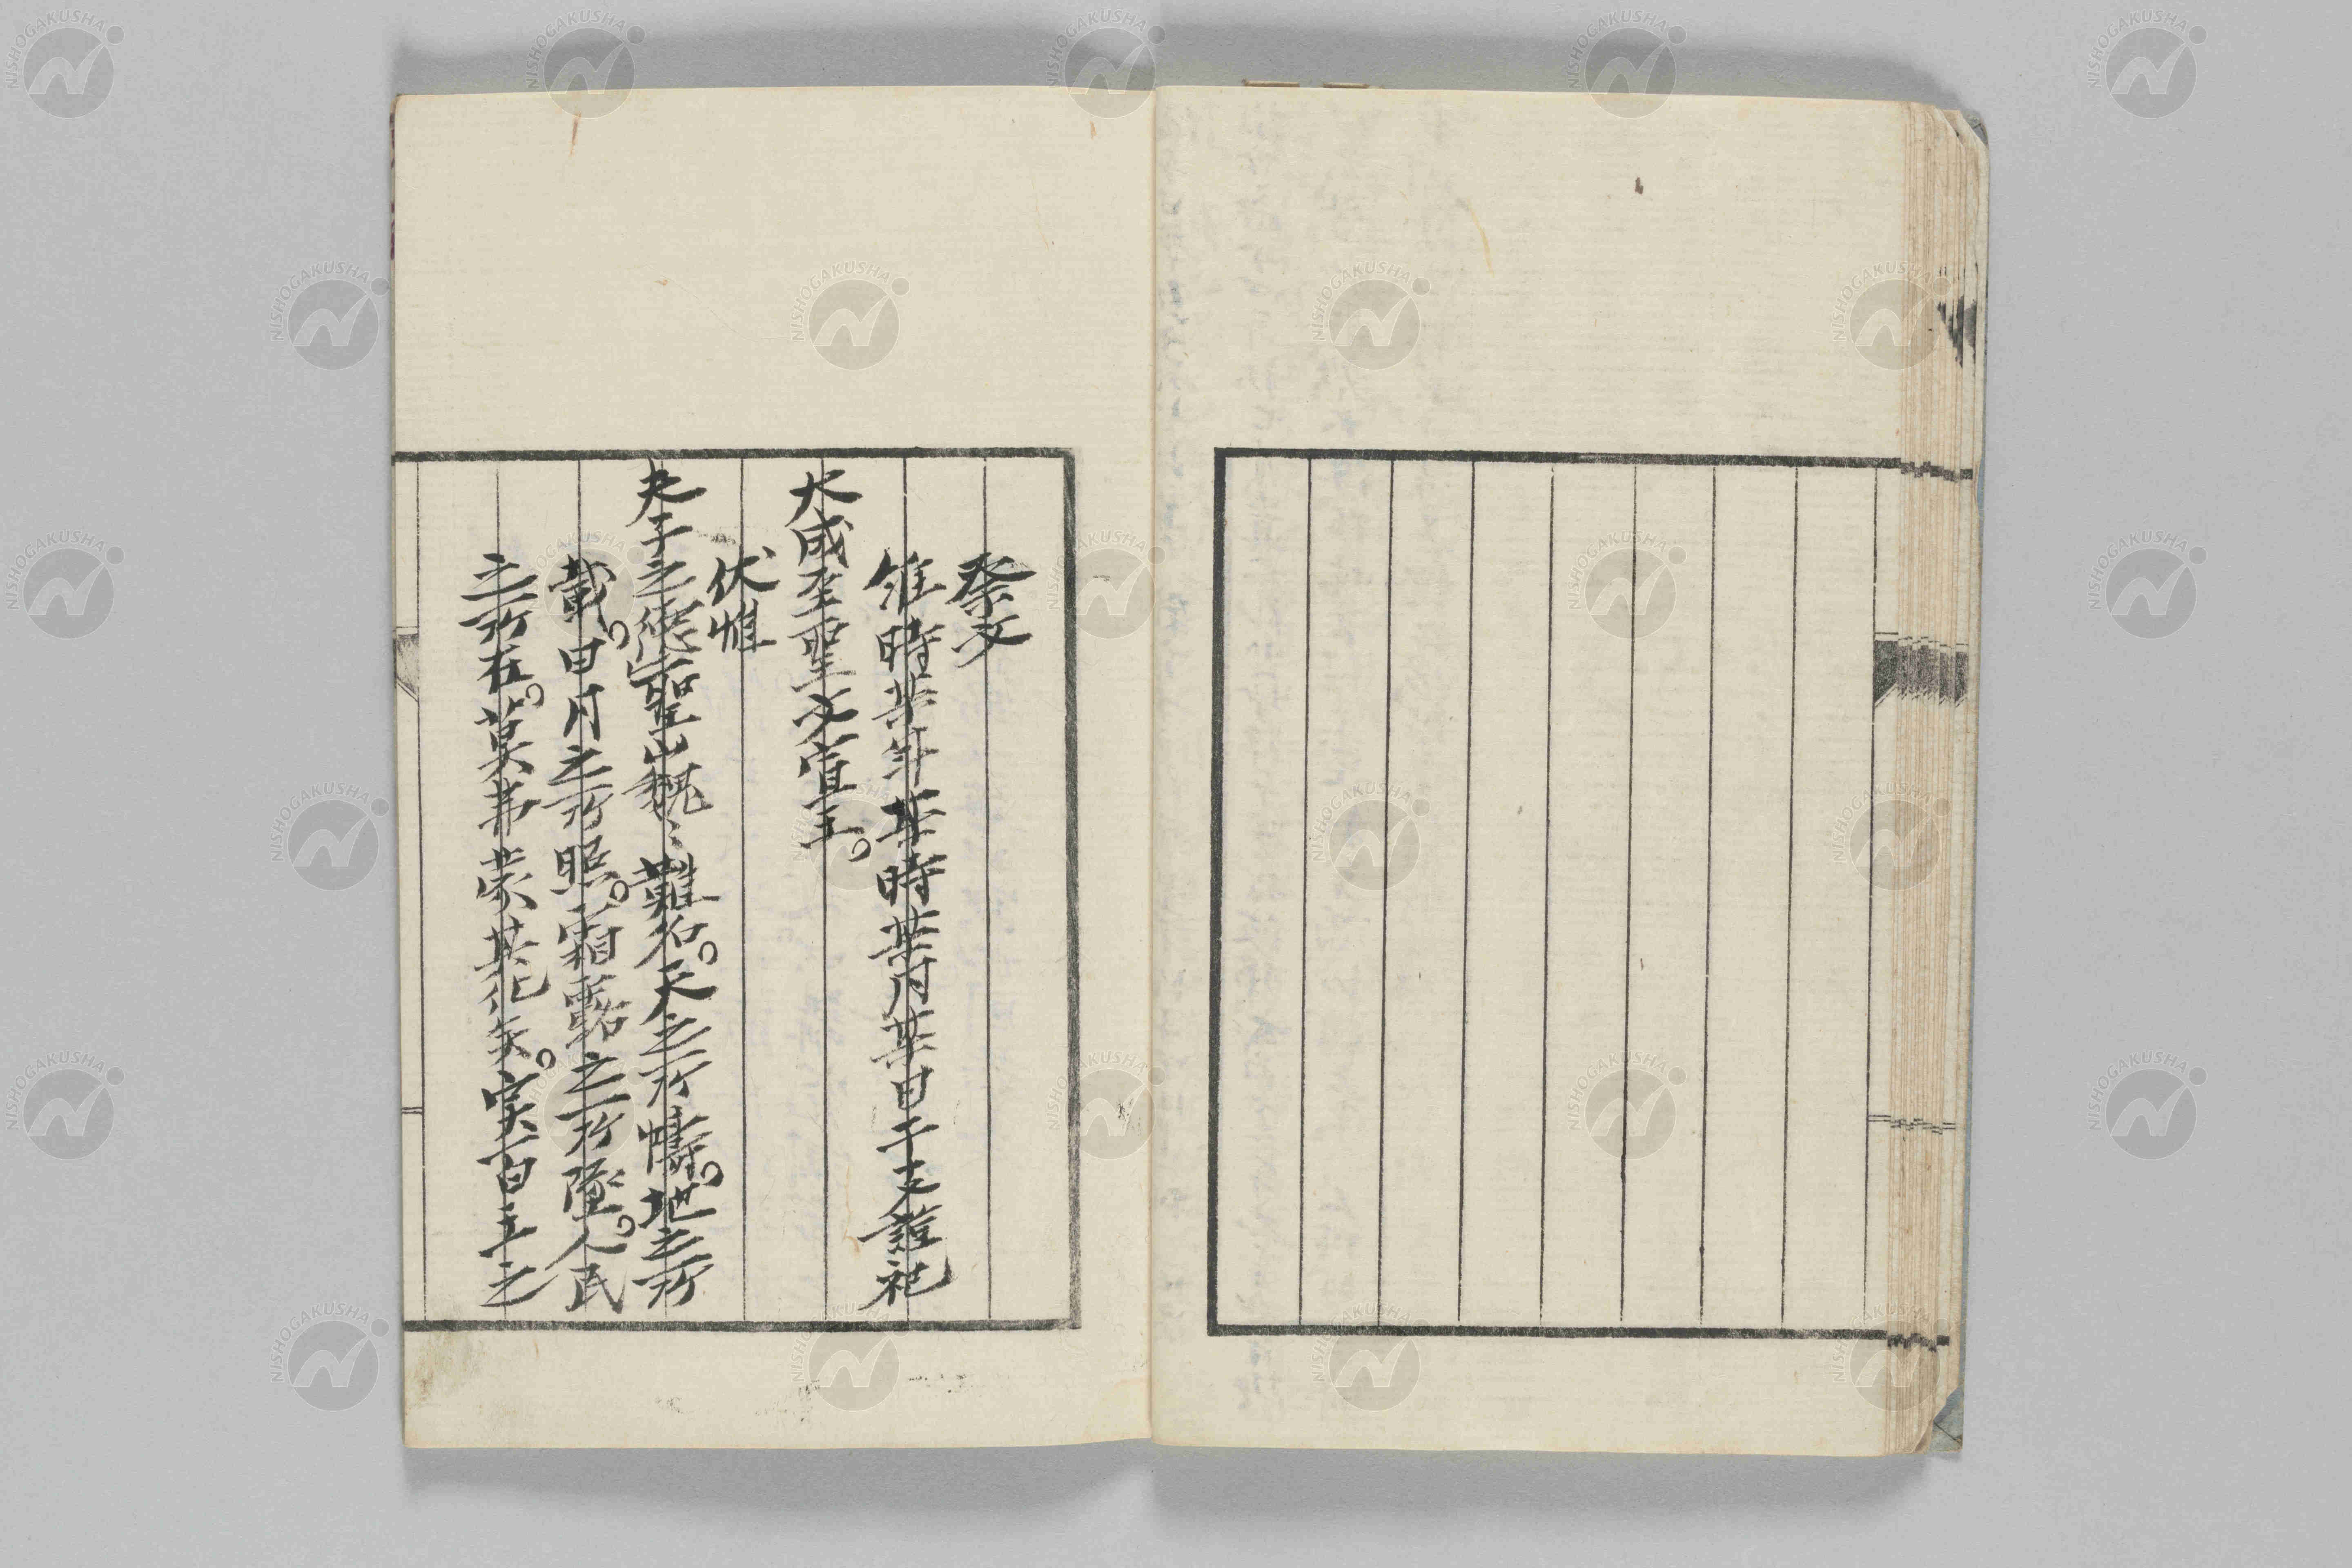 祭文
維時某年某時某月某日干支謹祀
大成至聖文宣王。
伏惟
夫子之德聖巍々難名。天之所幬。地之所
載。日月之所照。霜露之所墜。人民
之所在。莫弗蒙其化矣。實百王之
NISHOGAKUSHA